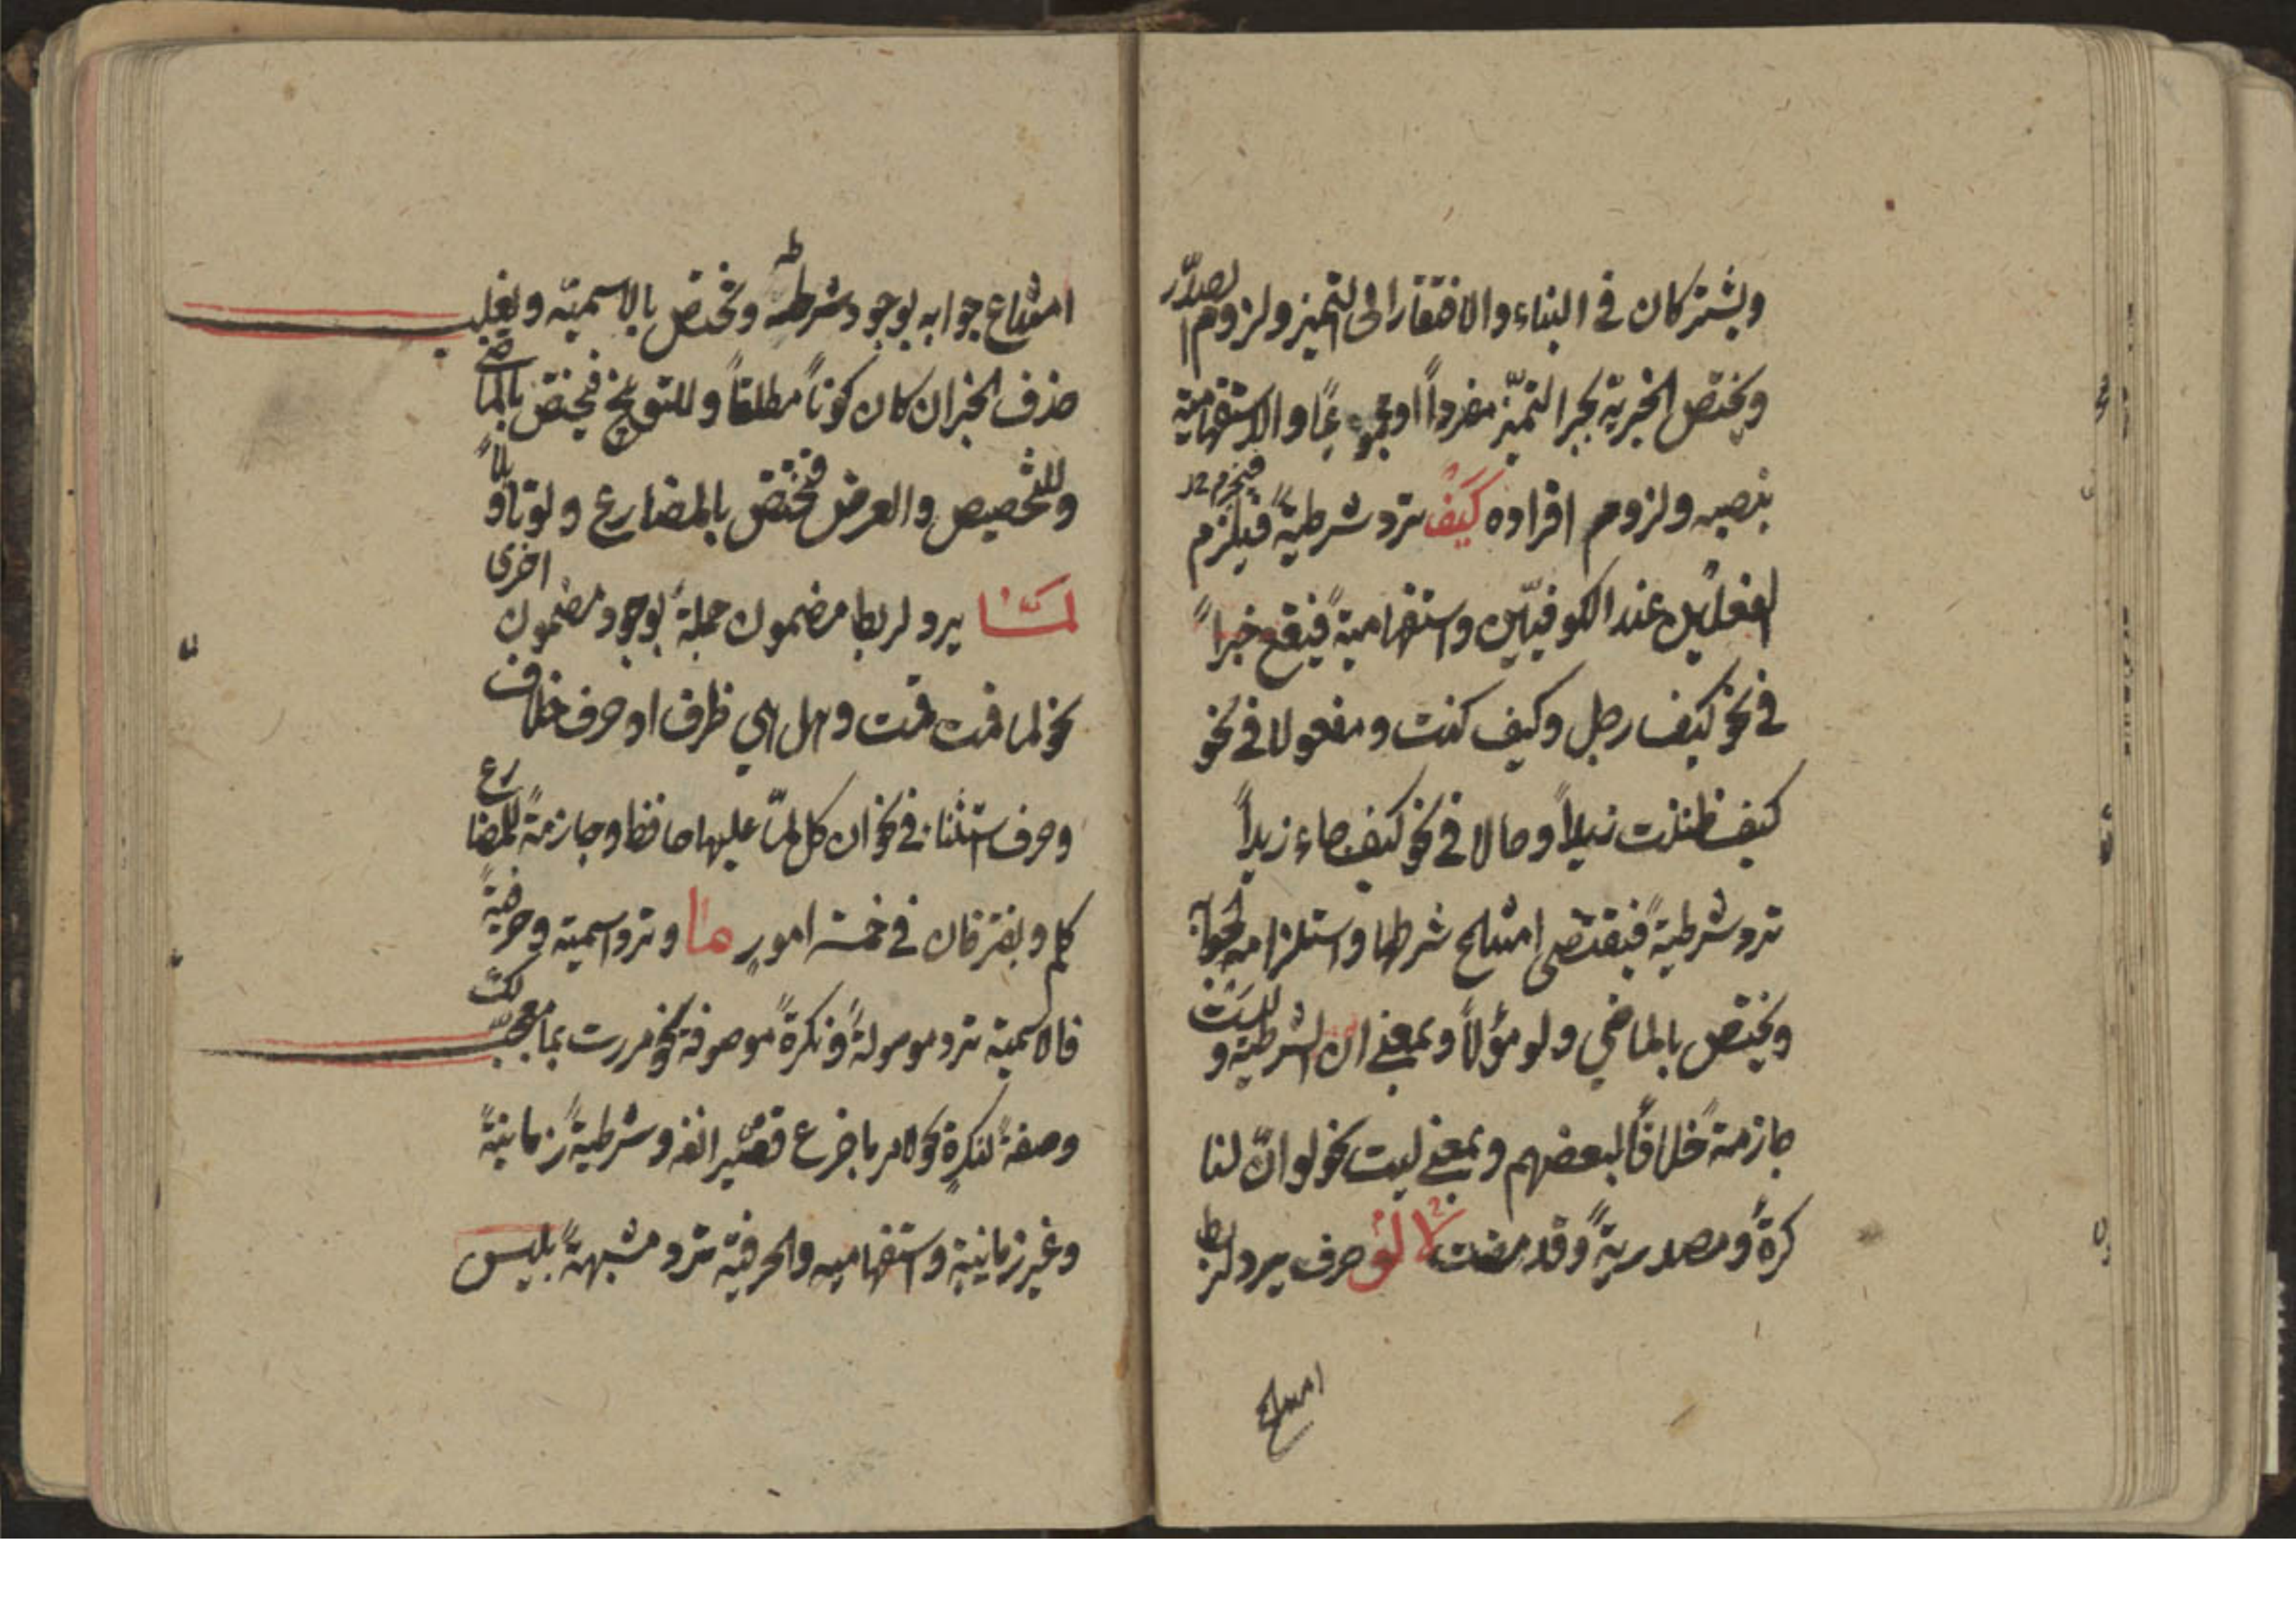 ويشتركان في البناء والافتقار الى التميز ولزوم الصدر
ويختص الخبرية بجر التميز مفرداً او مجموعاً والاستفهامية
بنصبه ولزوم افراده كيف ترد شرطيةً فيلزم
الفعلين عند الكوفيين واستفهاميةً فيقع خبراً
في نحو كيف رجل وكيف كنت ومفعولا في نحو
كيف ظننت زيداً وحالا في نحو كيف جاء زيداً
ترد شرطيةً فيقتضي امتناع شرطها واستلزامه لجوابه
ويختص بالماضي ولو مؤلاً وبمعنى ان الشرطية وليست
جازمةً خلافاً لبعضهم وبمعنى ليت نحو لو انّ لنا
كرةً ومصدريةً وقد مضت لولا حرف يرد لربط
امتناع
امتناع جوابه بوجود شرطه وتختص بالاسمية ويغلب
حذف الخبر ان كان كوناً مطلقاً وللتوبيخ فيختص بالماضي
وللتحضيض والعرض فتختص بالمضارع ولو تاويلاً
لمّا يرد لربط مضمون جملة بوجود مضمون اخرى
نحو لما قمت قمت وهل هي ظرف او حرف خلاف
وحرف استثناء في نحو ان كل لمّا عليها حافظ وجازمةً للمضارع
كلم ويفترقان في خمسة امورٍ ما وترد اسمية وحرفيةً
فالاسمية ترد موصولةً ونكرةً موصوفة نحو مررت بما معجب لك
وصفةً لنكرةٍ نحو لامر ما جدع قصير انفه وشرطيةً زمانيةً
وغير زمانية واستفهاميه والحرفية ترد مشبهةً بليس